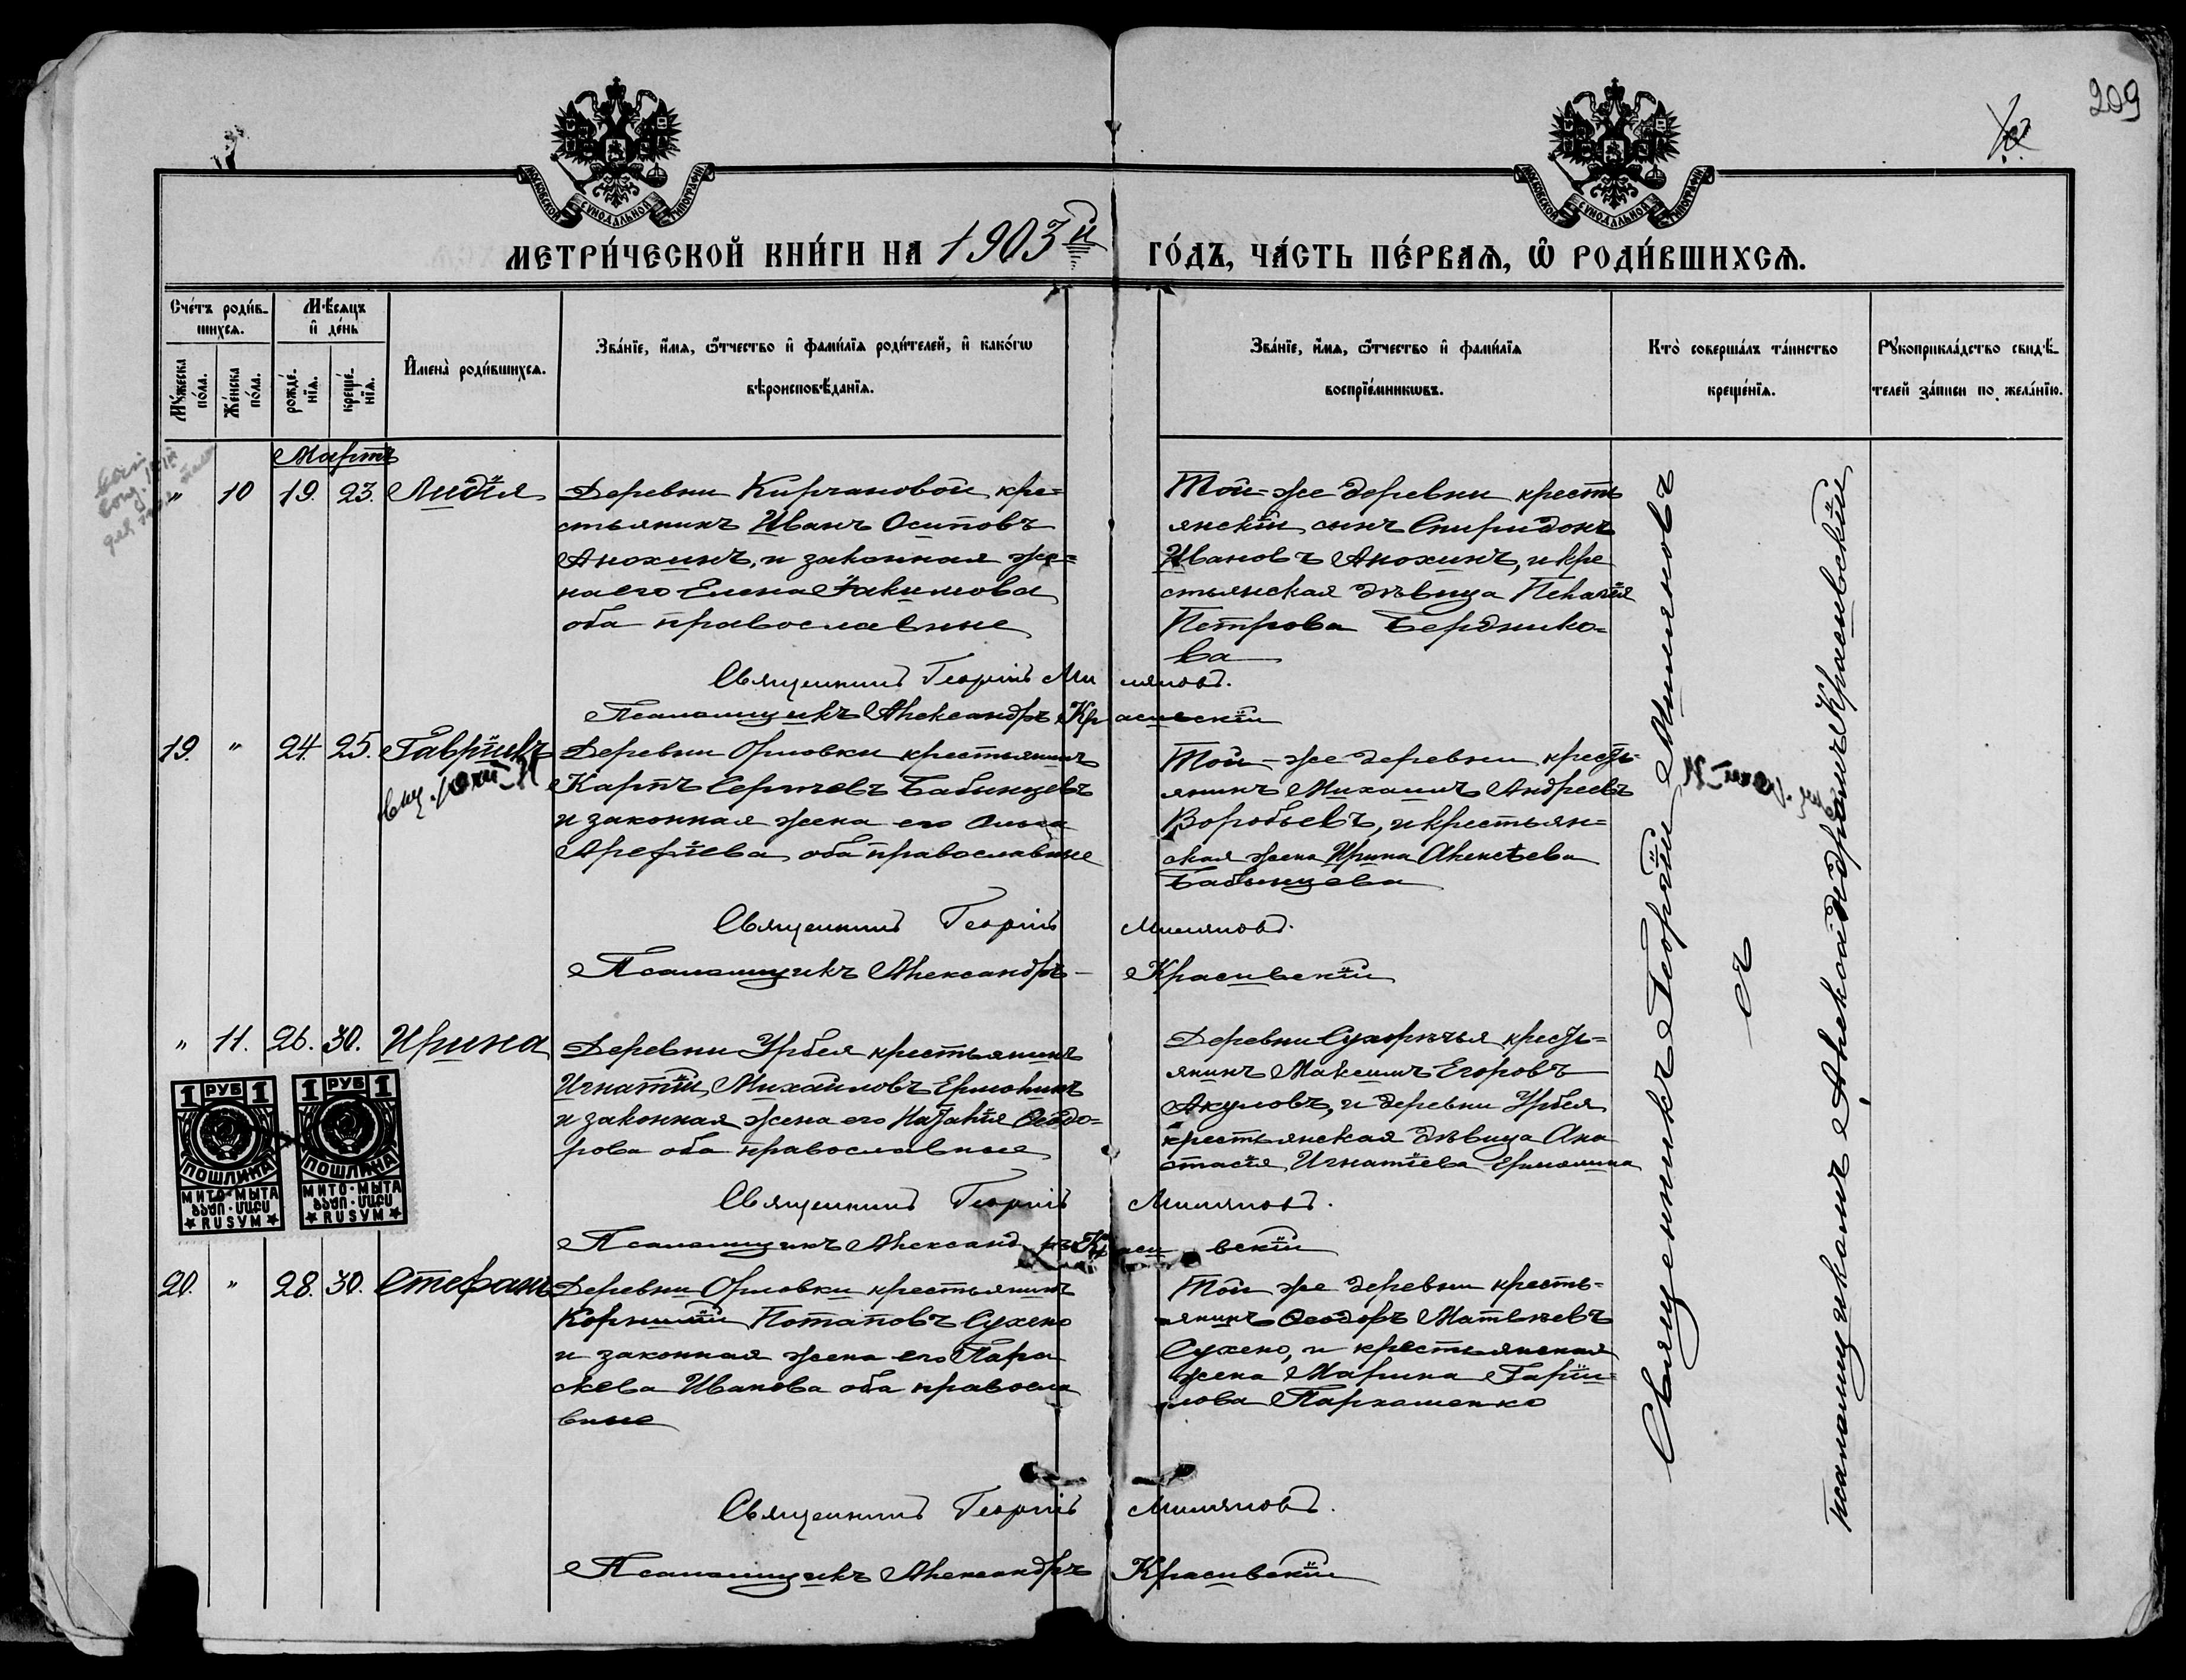 209
МОСКОВСКОЙ СУНОДАЛЬНОЙ ТИПОГРАФІИ
МОСКОВСКОЙ СУНОДАЛЬНОЙ ТИПОГРАФІИ
МЕТРИ́ЧЕСКОЙ КНИ́ГИ НА 1903й ГО́ДЪ, ЧА́СТЬ ПЕ́РВАѦ, Ѡ РОДИ́ВШИХСѦ.
Сче́тъ роди́в-
шихсѧ.
Мѣ́сѧцъ
и҆ де́нь
Му́жеска
по́ла.
Же́нска
по́ла.
рожде́-
нїѧ.
креще́-
нїѧ.
И҆мена̀ роди́вшихсѧ.
Зва́нїе, и҆́мѧ, ѻ҆́тчество и҆ фами́лїѧ роди́телей, и҆ како́гѡ
вѣроисповѣ́данїѧ.
Зва́нїе, и҆́мѧ, ѻ҆́тчество и҆ фами́лїѧ
воспрїе́мникѡвъ.
Кто̀ соверша́лъ та́инство
креще́нїѧ.
Рукоприкла́дство свидѣ́-
телей за́писи по жела́нїю.
Мартъ
" 10 19. 23. Лидія
Деревни Кирчановой кре=
стьянинъ Иванъ Осиповъ
Анохинъ, и законная же=
на его Елена Іакимова
оба православные
Той-же деревни кресть
янскій сынъ Спиридонъ
Ивановъ Анохинъ, и кре
стьянская дѣвица Пелагія
Петрова Бердико=
ва
Священникъ Георгій Миляновъ.
Псаломщикъ Александръ Красивскій
19. " 24. 25. Гавріилъ
Деревни Орловки крестьянинъ
Карпъ Сергѣевъ Бабынцевъ
и законная жена его Ольга
Арефіева оба православные
Той-же деревни кресть-
янинъ Михаилъ Андреевъ
Воробьевъ, и крестьян=
ская жена Ирина Алексѣева
Бабынцева
Священникъ Георгій Миляновъ.
Псаломщикъ Александръ - Красивскій
" 11. 26. 30. Ирина
Деревни Урбея крестьянинъ
Игнатій Михаиловъ Ермолинъ
и законная жена его Наталія Ѳеодо=
рова оба православные
Деревни Сухорѣчья кресть=
янинъ Максимъ Егоровъ
Акуловъ, и деревни Урбея
крестьянская дѣвица Ана
стасія Игнатіева Ермолина
Священникъ Георгій Миляновъ.
Псаломщикъ Александръ Красивскій
1 РУБ 1
ПОШЛИНА
МИТО·МЫТА
RUSУM
1 РУБ 1
ПОШЛИНА
МИТО·МЫТА
RUSУM
20. " 28. 30. Стефанъ
Деревни Орловки крестьянинъ
Корнилій Потаповъ Сухено
и законная жена его Пара
скева Иванова оба правосла
вные
Той же деревни кресть=
янинъ Ѳеодоръ Матвѣевъ
Сухено, и крестьянская
жена Марина Гаврі=
лова Пархоменко
Священникъ Георгій Миляновъ.
Псаломщикъ Александръ Красивскій
Священникъ Георгій Миляновъ
съ
псаломщикомъ Александромъ Красивскій